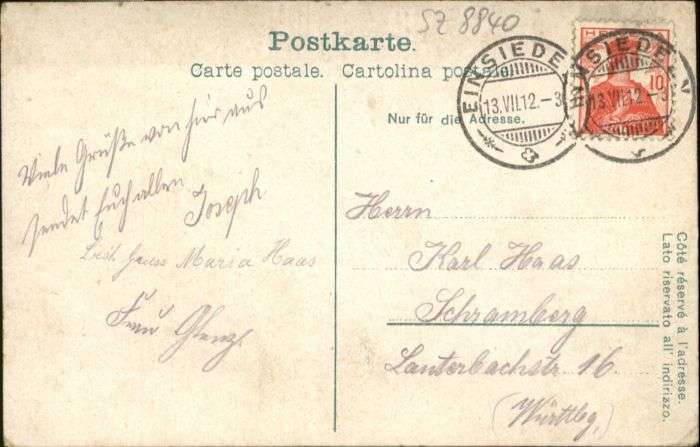 SZ 8840
Postkarte.
Carte postale. Cartolina postale.
Nur für die Adresse.
EINSIEDELN
13.VII.12.-3
EINSIEDELN
13.VII.12.-3
10
Viele Grüße von hier aus
sendet Euch allen
Joseph
Maria Haas
Frau
Herrn
Karl Haas
Schramberg
Lauterbachstr 16
(Württbg.)
Côté réservé à l'adresse.
Lato riservato all' indirizzo.